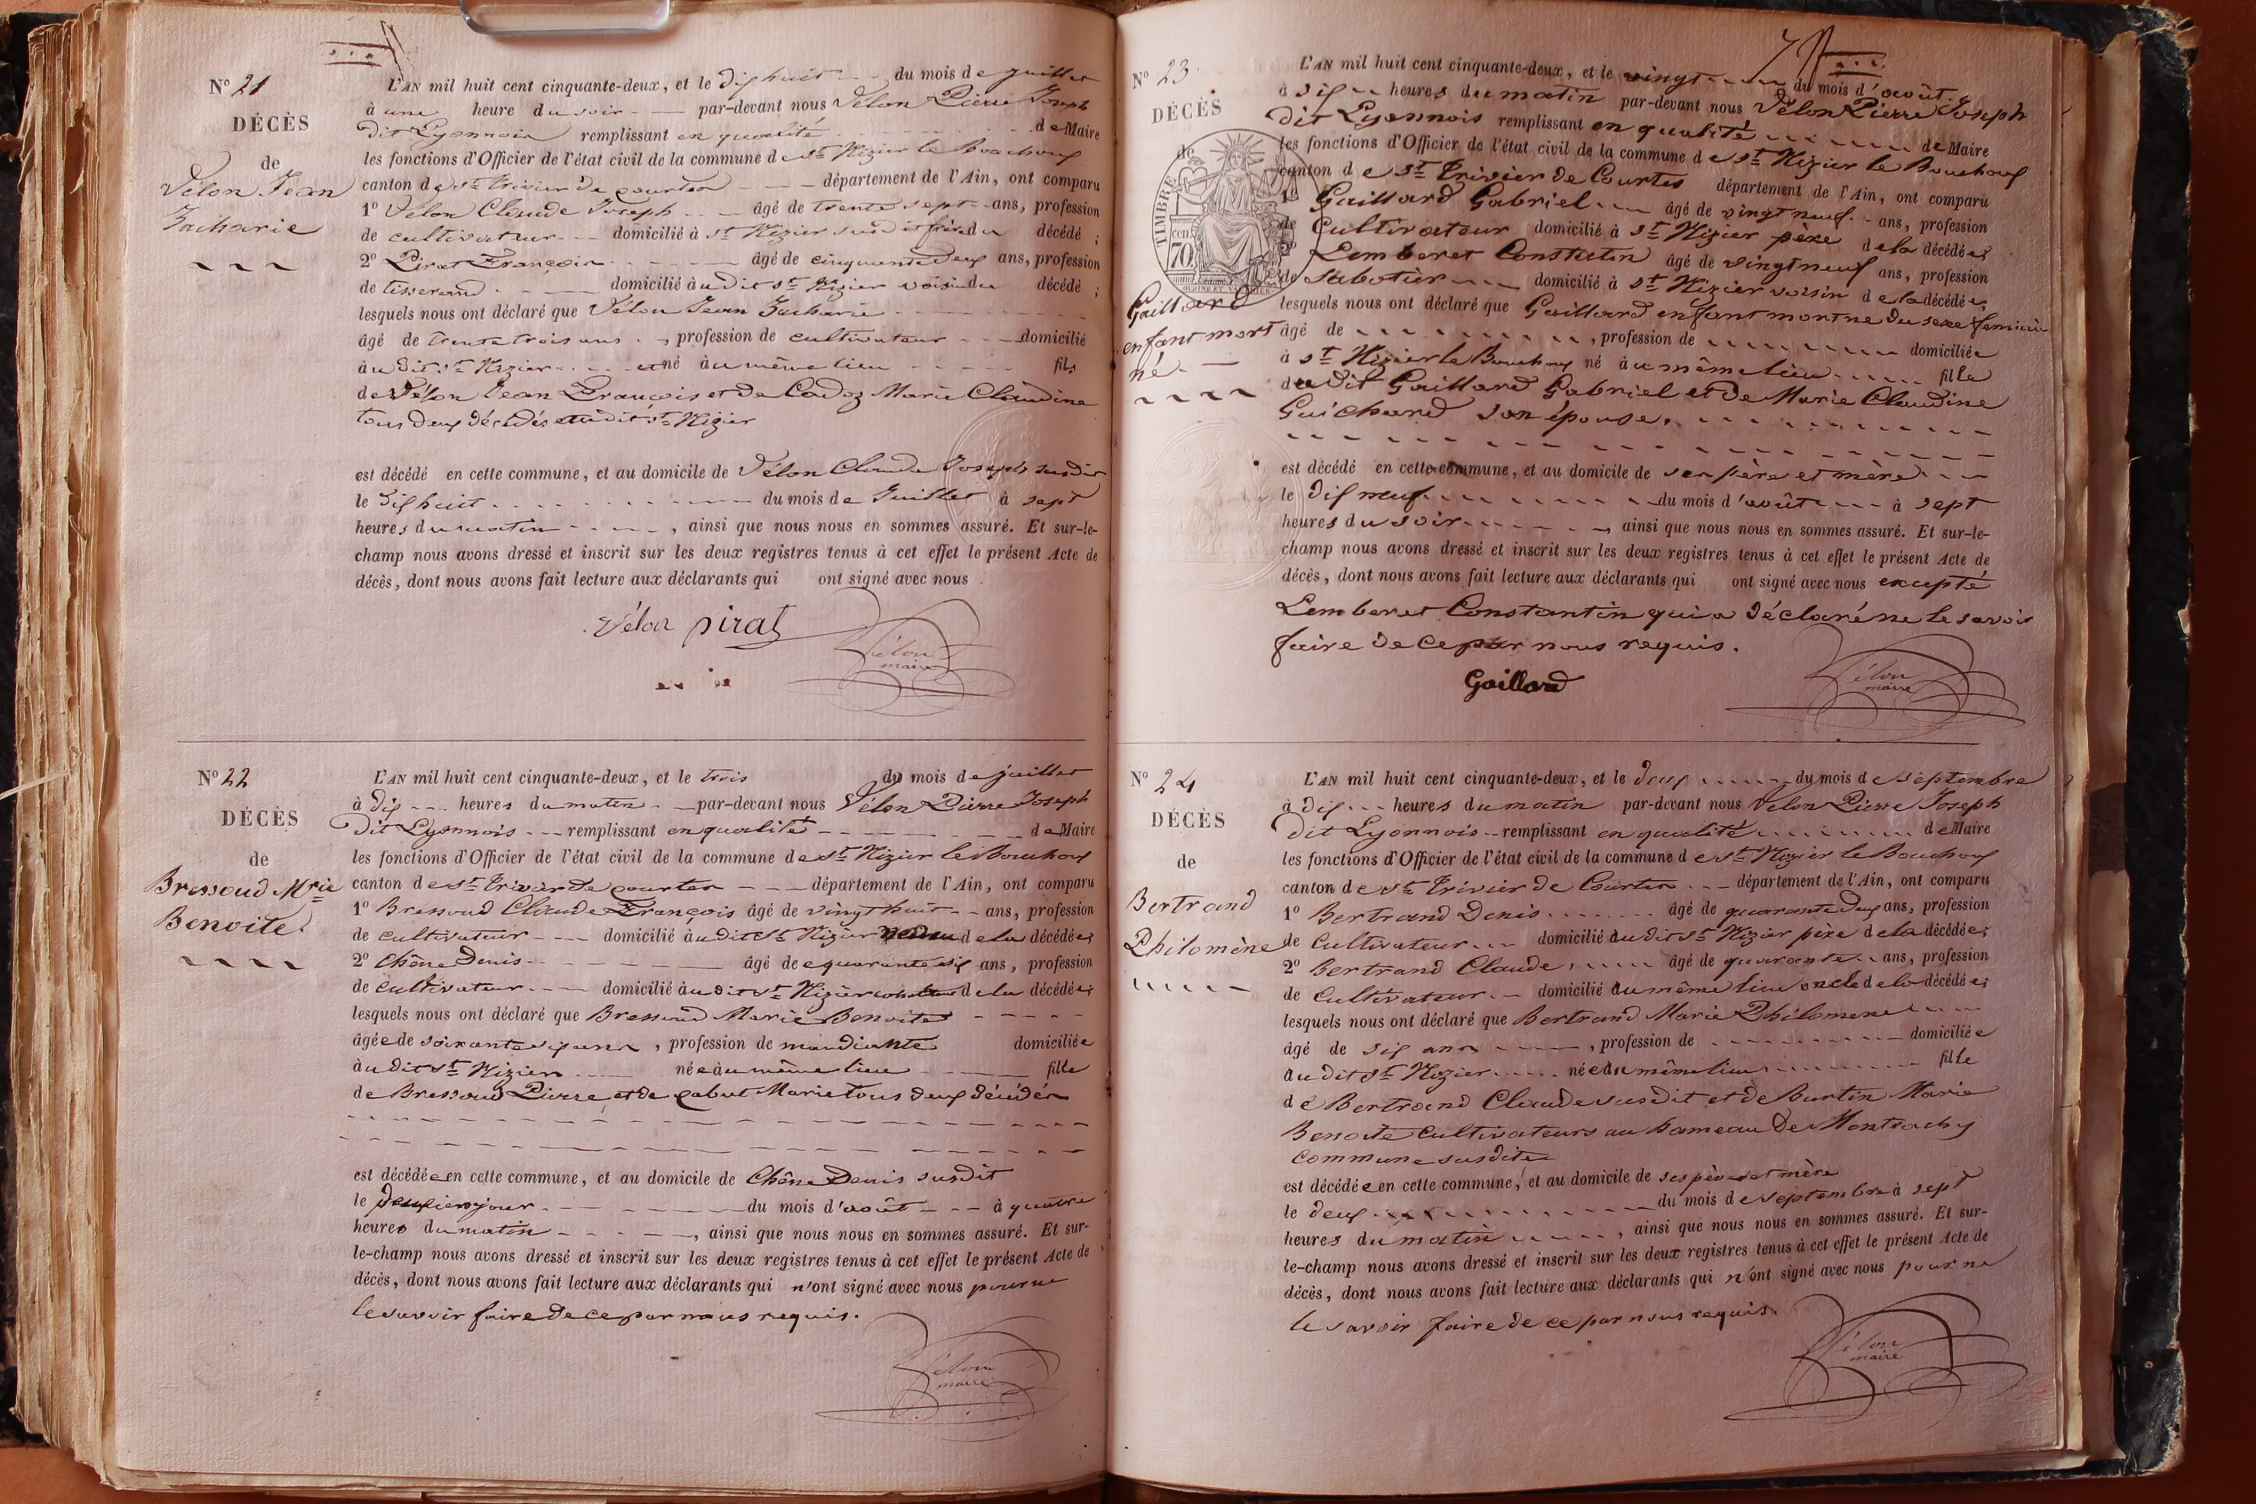 N° 21
DÉCÈS
de
Vélon Jean
Zacharie
L'AN mil huit cent cinquante-deux, et le dix huit du mois de juillet
à une heure du soir par-devant nous Vélon Pierre Joseph
dit Lyonnois remplissant en qualité de Maire
les fonctions d'Officier de l'état civil de la commune de St Nizier le Bouchoux
canton de St Trivier de courtes département de l'Ain, ont comparu
1° Vélon Claude Joseph âgé de trente sept ans, profession
de cultivateur domicilié à St Nizier frère du décédé;
2° Pirat François âgé de cinquante deux ans, profession
de tisserand domicilié audit St Nizier voisin du décédé;
lesquels nous ont déclaré que Vélon Jean Zacharie
âgé de trente trois ans, profession de cultivateur domicilié
audit St Nizier et né au même lieu fils
de Vélon Jean François et de Cadoz Marie Claudine
tous deux décédés audit St Nizier
est décédé en cette commune, et au domicile de Vélon Claude Joseph susdit
le dix huit du mois de Juillet à sept
heures du matin, ainsi que nous nous en sommes assuré. Et sur-le-
champ nous avons dressé et inscrit sur les deux registres tenus à cet effet le présent Acte de
décès, dont nous avons fait lecture aux déclarants qui ont signé avec nous.
Vélon pirat
Vélon
maire
N° 22
DÉCÈS
de
Bressoud Mrie
Benoite
L'AN mil huit cent cinquante-deux, et le trois du mois de juillet
à dix heures du matin par-devant nous Vélon Pierre Joseph
dit Lyonnois remplissant en qualité de Maire
les fonctions d'Officier de l'état civil de la commune de St Nizier le Bouchoux
canton de St Trivier de courtes département de l'Ain, ont comparu
1° Bressoud Claude François âgé de vingt huit ans, profession
de cultivateur domicilié audit St Nizier de la décédée;
2° Chêne Denis âgé de quarante six ans, profession
de cultivateur domicilié audit St Nizier de la décédée;
lesquels nous ont déclaré que Bressoud Marie Benoite
âgée de soixante six ans, profession de mandiante domiciliée
audit St Nizier née au même lieu fille
de Bressoud Pierre et de Cabut Marie tous deux décédés
est décédée en cette commune, et au domicile de Chêne Denis susdit
le jour du mois d'août à quatre
heures du matin, ainsi que nous nous en sommes assuré. Et sur-
le-champ nous avons dressé et inscrit sur les deux registres tenus à cet effet le présent Acte de
décès, dont nous avons fait lecture aux déclarants qui n'ont signé avec nous pour ne
le savoir faire de ce par nous requis.
Vélon
maire
N° 23
DÉCÈS
de
TIMBRE
70
Gaillard
enfant mort
né
L'AN mil huit cent cinquante-deux, et le vingt du mois d'août
à dix heures du matin par-devant nous Vélon Pierre Joseph
dit Lyonnois remplissant en qualité de Maire
les fonctions d'Officier de l'état civil de la commune de St Nizier le Bouchoux
canton de St Trivier de Courtes département de l'Ain, ont comparu
1° Gaillard Gabriel âgé de vingt neuf ans, profession
de Cultivateur domicilié à St Nizier père de la décédée;
2° Lemberet Constentin âgé de vingt neuf ans, profession
de Sabotier domicilié à St Nizier voisin de la décédée;
lesquels nous ont déclaré que Gaillard enfant mort né du sexe féminin
âgé de, profession de domiciliée
à St Nizier le Bouchoux né au même lieu fille
dudit Gaillard Gabriel et de Marie Claudine
Guichard son épouse.
est décédé en cette commune, et au domicile de ses père et mère
le dix neuf du mois d'août à sept
heures du soir, ainsi que nous nous en sommes assuré. Et sur-le-
champ nous avons dressé et inscrit sur les deux registres tenus à cet effet le présent Acte de
décès, dont nous avons fait lecture aux déclarants qui ont signé avec nous excepté
Lemberet Constantin qui a déclaré ne le savoir
faire de ce par nous requis.
Gaillard
Vélon
maire
N° 24
DÉCÈS
de
Bertrand
Philomène
L'AN mil huit cent cinquante-deux, et le deux du mois de septembre
à dix heures du matin par-devant nous Vélon Pierre Joseph
dit Lyonnois remplissant en qualité de Maire
les fonctions d'Officier de l'état civil de la commune de St Nizier le Bouchoux
canton de St Trivier de Courtes département de l'Ain, ont comparu
1° Bertrand Denis âgé de quarante deux ans, profession
de Cultivateur domicilié audit St Nizier père de la décédée;
2° Bertrand Claude, âgé de quarante ans, profession
de Cultivateur domicilié au même lieu oncle de la décédée;
lesquels nous ont déclaré que Bertrand Marie Philomene
âgé de six ans, profession de domiciliée
audit St Nizier née au même lieu fille
de Bertrand Claude susdit et de Burtin Marie
Benoite cultivateurs au hameau de Montrachy
commune susdite
est décédée en cette commune, et au domicile de ses père et mère
le deux du mois de septembre à sept
heures du matin, ainsi que nous nous en sommes assuré. Et sur-
le-champ nous avons dressé et inscrit sur les deux registres tenus à cet effet le présent Acte de
décès, dont nous avons fait lecture aux déclarants qui n'ont signé avec nous pour ne
le savoir faire de ce par nous requis.
Vélon
maire